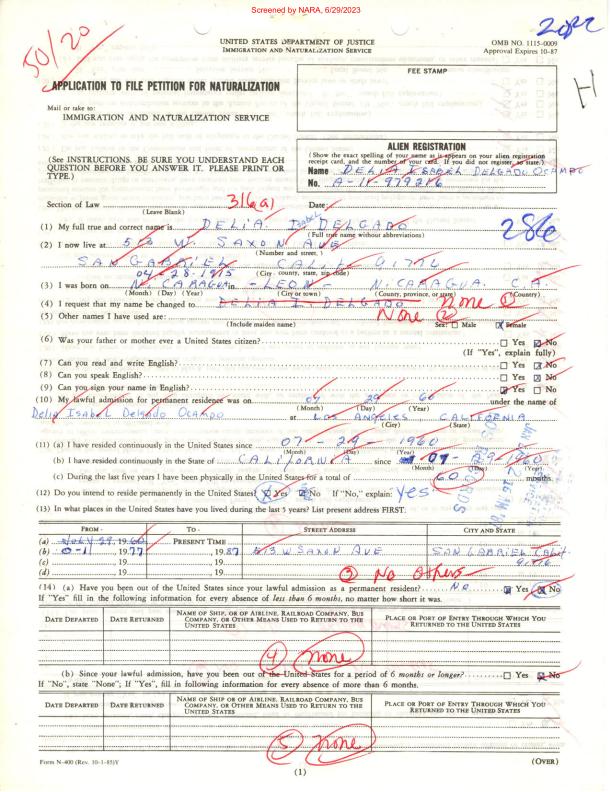 Screened by NARA, 6/29/2023
50/20
UNITED STATES DEPARTMENT OF JUSTICE
IMMIGRATION AND NATURALIZATION SERVICE
OMB NO. 1115-0009
Approval Expires 10-87
APPLICATION TO FILE PETITION FOR NATURALIZATION
FEE STAMP
H
Mail or take to:
IMMIGRATION AND NATURALIZATION SERVICE
ALIEN REGISTRATION
(See INSTRUCTIONS. BE SURE YOU UNDERSTAND EACH QUESTION BEFORE YOU ANSWER IT. PLEASE PRINT OR TYPE.)
(Show the exact spelling of your name as it appears on your alien registration receipt card, and the number of your card. If you did not register, so state.)
Name DELIA ISABEL DELGADO OCAMPO
No. A-11-979216
Section of Law 316(a) Date:
(Leave Blank)
286
(1) My full true and correct name is DELIA. Isabel DELGADO
(Full true name without abbreviations)
(2) I now live at W. SAXON AVE
(Number and street,)
SAN GABRIEL CALIF 91776
(City, county, state, zip code)
04-28-1915
(3) I was born on NICARAGUA in -LEON- NICARAGUA. C.A.
(Month) (Day) (Year) (City or town) (County, province, or state) (Country)
(4) I request that my name be changed to DELIA I. DELGADO None 1
(5) Other names I have used are: None 2
(Include maiden name) Sex: Male Female
(6) Was your father or mother ever a United States citizen? Yes No
(If "Yes", explain fully)
(7) Can you read and write English? Yes No
(8) Can you speak English? Yes No
(9) Can you sign your name in English? Yes No
(10) My lawful admission for permanent residence was on 07 29 60 under the name of
(Month) (Day) (Year)
Delia Isabel Delgado Ocampo at LOS ANGELES CALIFORNIA
(City) (State)
(11) (a) I have resided continuously in the United States since 07-29-1960
(Month) (Day) (Year)
(b) I have resided continuously in the State of CALIFORNIA since 07- -1960
(Month) (Day) (Year)
(c) During the last five years I have been physically in the United States for a total of 60 months.
(12) Do you intend to reside permanently in the United States? Yes No If "No," explain: Yes-
(13) In what places in the United States have you lived during the last 5 years? List present address FIRST.
FROM - TO - STREET ADDRESS CITY AND STATE
(a) JULY 29, 1960 PRESENT TIME
(b) 0-1, 1977 , 1987 513 W SAXON AVE SAN GABRIEL CALIF.
(c) , 19 , 19 91776
(d) , 19 , 19 3 No Others-
(14) (a) Have you been out of the United States since your lawful admission as a permanent resident? NO Yes No
If "Yes" fill in the following information for every absence of less than 6 months, no matter how short it was.
DATE DEPARTED DATE RETURNED NAME OF SHIP, OR OF AIRLINE, RAILROAD COMPANY, BUS COMPANY, OR OTHER MEANS USED TO RETURN TO THE UNITED STATES PLACE OR PORT OF ENTRY THROUGH WHICH YOU RETURNED TO THE UNITED STATES
4 none
(b) Since your lawful admission, have you been out of the United States for a period of 6 months or longer? Yes No
If "No", state "None"; If "Yes", fill in following information for every absence of more than 6 months.
DATE DEPARTED DATE RETURNED NAME OF SHIP, OR OF AIRLINE, RAILROAD COMPANY, BUS COMPANY, OR OTHER MEANS USED TO RETURN TO THE UNITED STATES PLACE OR PORT OF ENTRY THROUGH WHICH YOU RETURNED TO THE UNITED STATES
5 none
Form N-400 (Rev. 10-1-85)Y
(OVER)
(1)